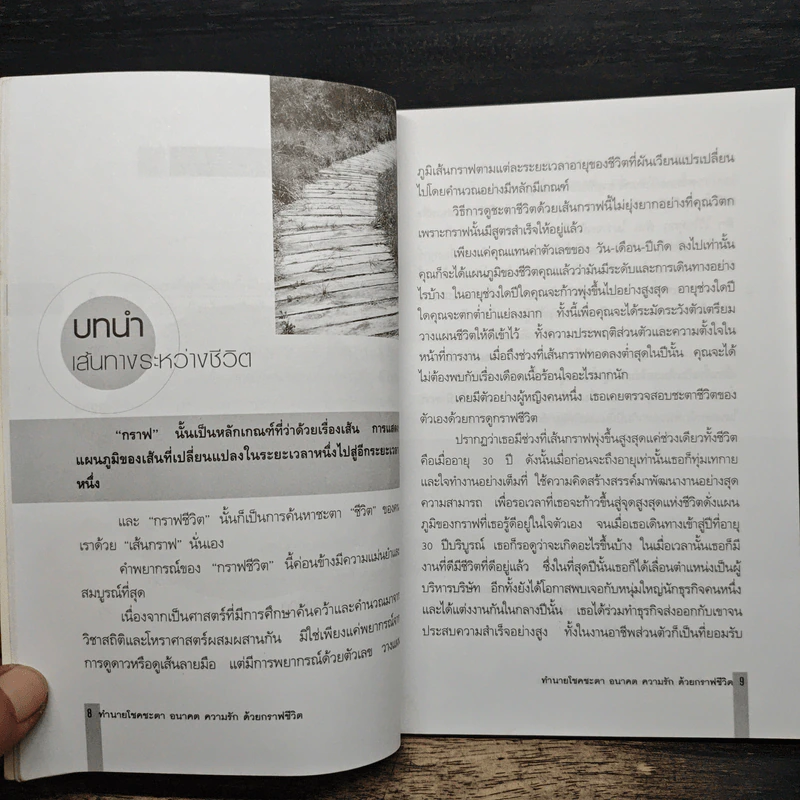 บทนำ
เส้นทางระหว่างชีวิต
"กราฟ" นั้นเป็นหลักเกณฑ์ที่ว่าด้วยเรื่องเส้น การแสดง
แผนภูมิของเส้นที่เปลี่ยนแปลงในระยะเวลาหนึ่งไปสู่อีกระยะเวลา
หนึ่ง
และ "กราฟชีวิต" นั้นก็เป็นการค้นหาชะตา "ชีวิต" ของคน
เราด้วย "เส้นกราฟ" นั่นเอง
คำพยากรณ์ของ "กราฟชีวิต" นี้ค่อนข้างมีความแม่นยำและ
สมบูรณ์ที่สุด
เนื่องจากเป็นศาสตร์ที่มีการศึกษาค้นคว้าและคำนวณมาจาก
วิชาสถิติและโหราศาสตร์ผสมผสานกัน มิใช่เพียงแค่พยากรณ์จาก
การดูดาวหรือดูเส้นลายมือ แต่มีการพยากรณ์ด้วยตัวเลข วางแผน
8 ทำนายโชคชะตา อนาคต ความรัก ด้วยกราฟชีวิต
ภูมิเส้นกราฟตามแต่ละระยะเวลาอายุของชีวิตที่ผันเวียนแปรเปลี่ยน
ไปโดยคำนวณอย่างมีหลักมีเกณฑ์
วิธีการดูชะตาชีวิตด้วยเส้นกราฟนี้ไม่ยุ่งยากอย่างที่คุณวิตก
เพราะกราฟนั้นมีสูตรสำเร็จให้อยู่แล้ว
เพียงแค่คุณแทนค่าตัวเลขของ วัน-เดือน-ปีเกิด ลงไปเท่านั้น
คุณก็จะได้แผนภูมิของชีวิตคุณแล้วว่ามันมีระดับและการเดินทางอย่าง
ไรบ้าง ในอายุช่วงใดปีใดคุณจะก้าวพุ่งขึ้นไปอย่างสูงสุด อายุช่วงใดปี
ใดคุณจะตกต่ำย่ำแย่ลงมาก ทั้งนี้เพื่อคุณจะได้ระมัดระวังตัวเตรียม
วางแผนชีวิตให้ดีเข้าไว้ ทั้งความประพฤติส่วนตัวและความตั้งใจใน
หน้าที่การงาน เมื่อถึงช่วงที่เส้นกราฟทอดลงต่ำสุดในปีนั้น คุณจะได้
ไม่ต้องพบกับเรื่องเดือดเนื้อร้อนใจอะไรมากนัก
เคยมีตัวอย่างผู้หญิงคนหนึ่ง เธอเคยตรวจสอบชะตาชีวิตของ
ตัวเองด้วยการดูกราฟชีวิต
ปรากฏว่าเธอมีช่วงที่เส้นกราฟพุ่งขึ้นสูงสุดแค่ช่วงเดียวทั้งชีวิต
คือเมื่ออายุ 30 ปี ดังนั้นเมื่อก่อนจะถึงอายุเท่านั้นเธอก็ทุ่มเทกาย
และใจทำงานอย่างเต็มที่ ใช้ความคิดสร้างสรรค์มาพัฒนางานอย่างสุด
ความสามารถ เพื่อรอเวลาที่เธอจะก้าวขึ้นสู่จุดสูงสุดแห่งชีวิตดั่งแผน
ภูมิของกราฟที่เธอรู้ดีอยู่ในใจตัวเอง จนเมื่อเธอเดินทางเข้าสู่ปีที่อายุ
30 ปีบริบูรณ์ เธอก็รอดูว่าจะเกิดอะไรขึ้นบ้าง ในเมื่อเวลานั้นเธอก็มี
งานที่ดีมีชีวิตที่ดีอยู่แล้ว ซึ่งในที่สุดปีนั้นเธอก็ได้เลื่อนตำแหน่งเป็นผู้
บริหารบริษัท อีกทั้งยังได้โอกาสพบเจอกับหนุ่มใหญ่นักธุรกิจคนหนึ่ง
และได้แต่งงานกันในกลางปีนั้น เธอได้ร่วมทำธุรกิจส่งออกกับเขาจน
ประสบความสำเร็จอย่างสูง ทั้งในงานอาชีพส่วนตัวก็เป็นที่ยอมรับ
ทำนายโชคชะตา อนาคต ความรัก ด้วยกราฟชีวิต 9